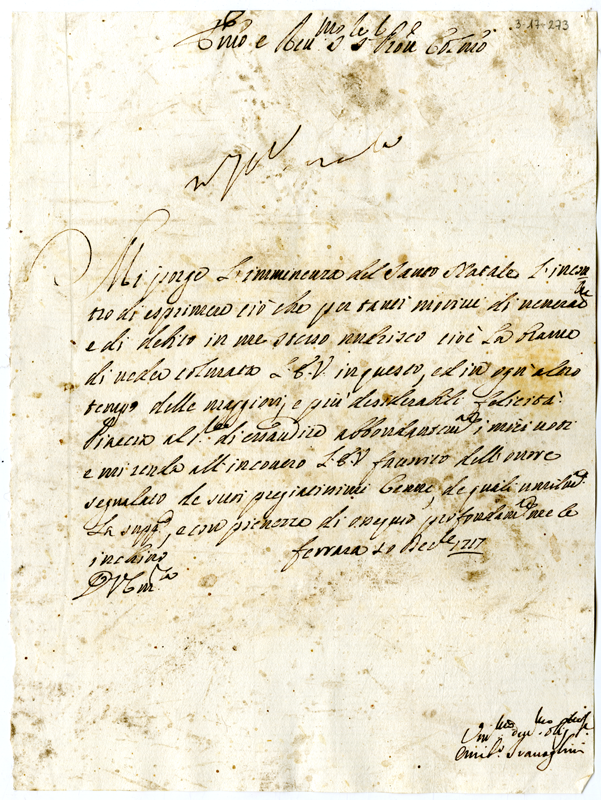 3-17-273
Em̃o e Reu.mo S.r S.r Pron Col.mo
Mi porge l'imminenza del Santo Natale l'incon
tro di esprimere ciò che per tanti motivi di veneraz.ne
e di debito in me stesso nutrisco cioè la brama
di veder colmata L'E.V. in questo, ed in ogni altro
tempo delle maggiori, e più desiderabili felicità
Piaccia al S.re di essaudire abbondantem.te i miei voti
e mi renda all'incontro L'E.V. favorito dell'onore
segnalato de suoi pregiatissimi Cenni, de quali umilm.te
La supp.co, e con pienezza di ossequio profondam.te me le
inchino
Ferrara 20 Dec.re 1717
D V Em.za
Um.mo Dev.mo